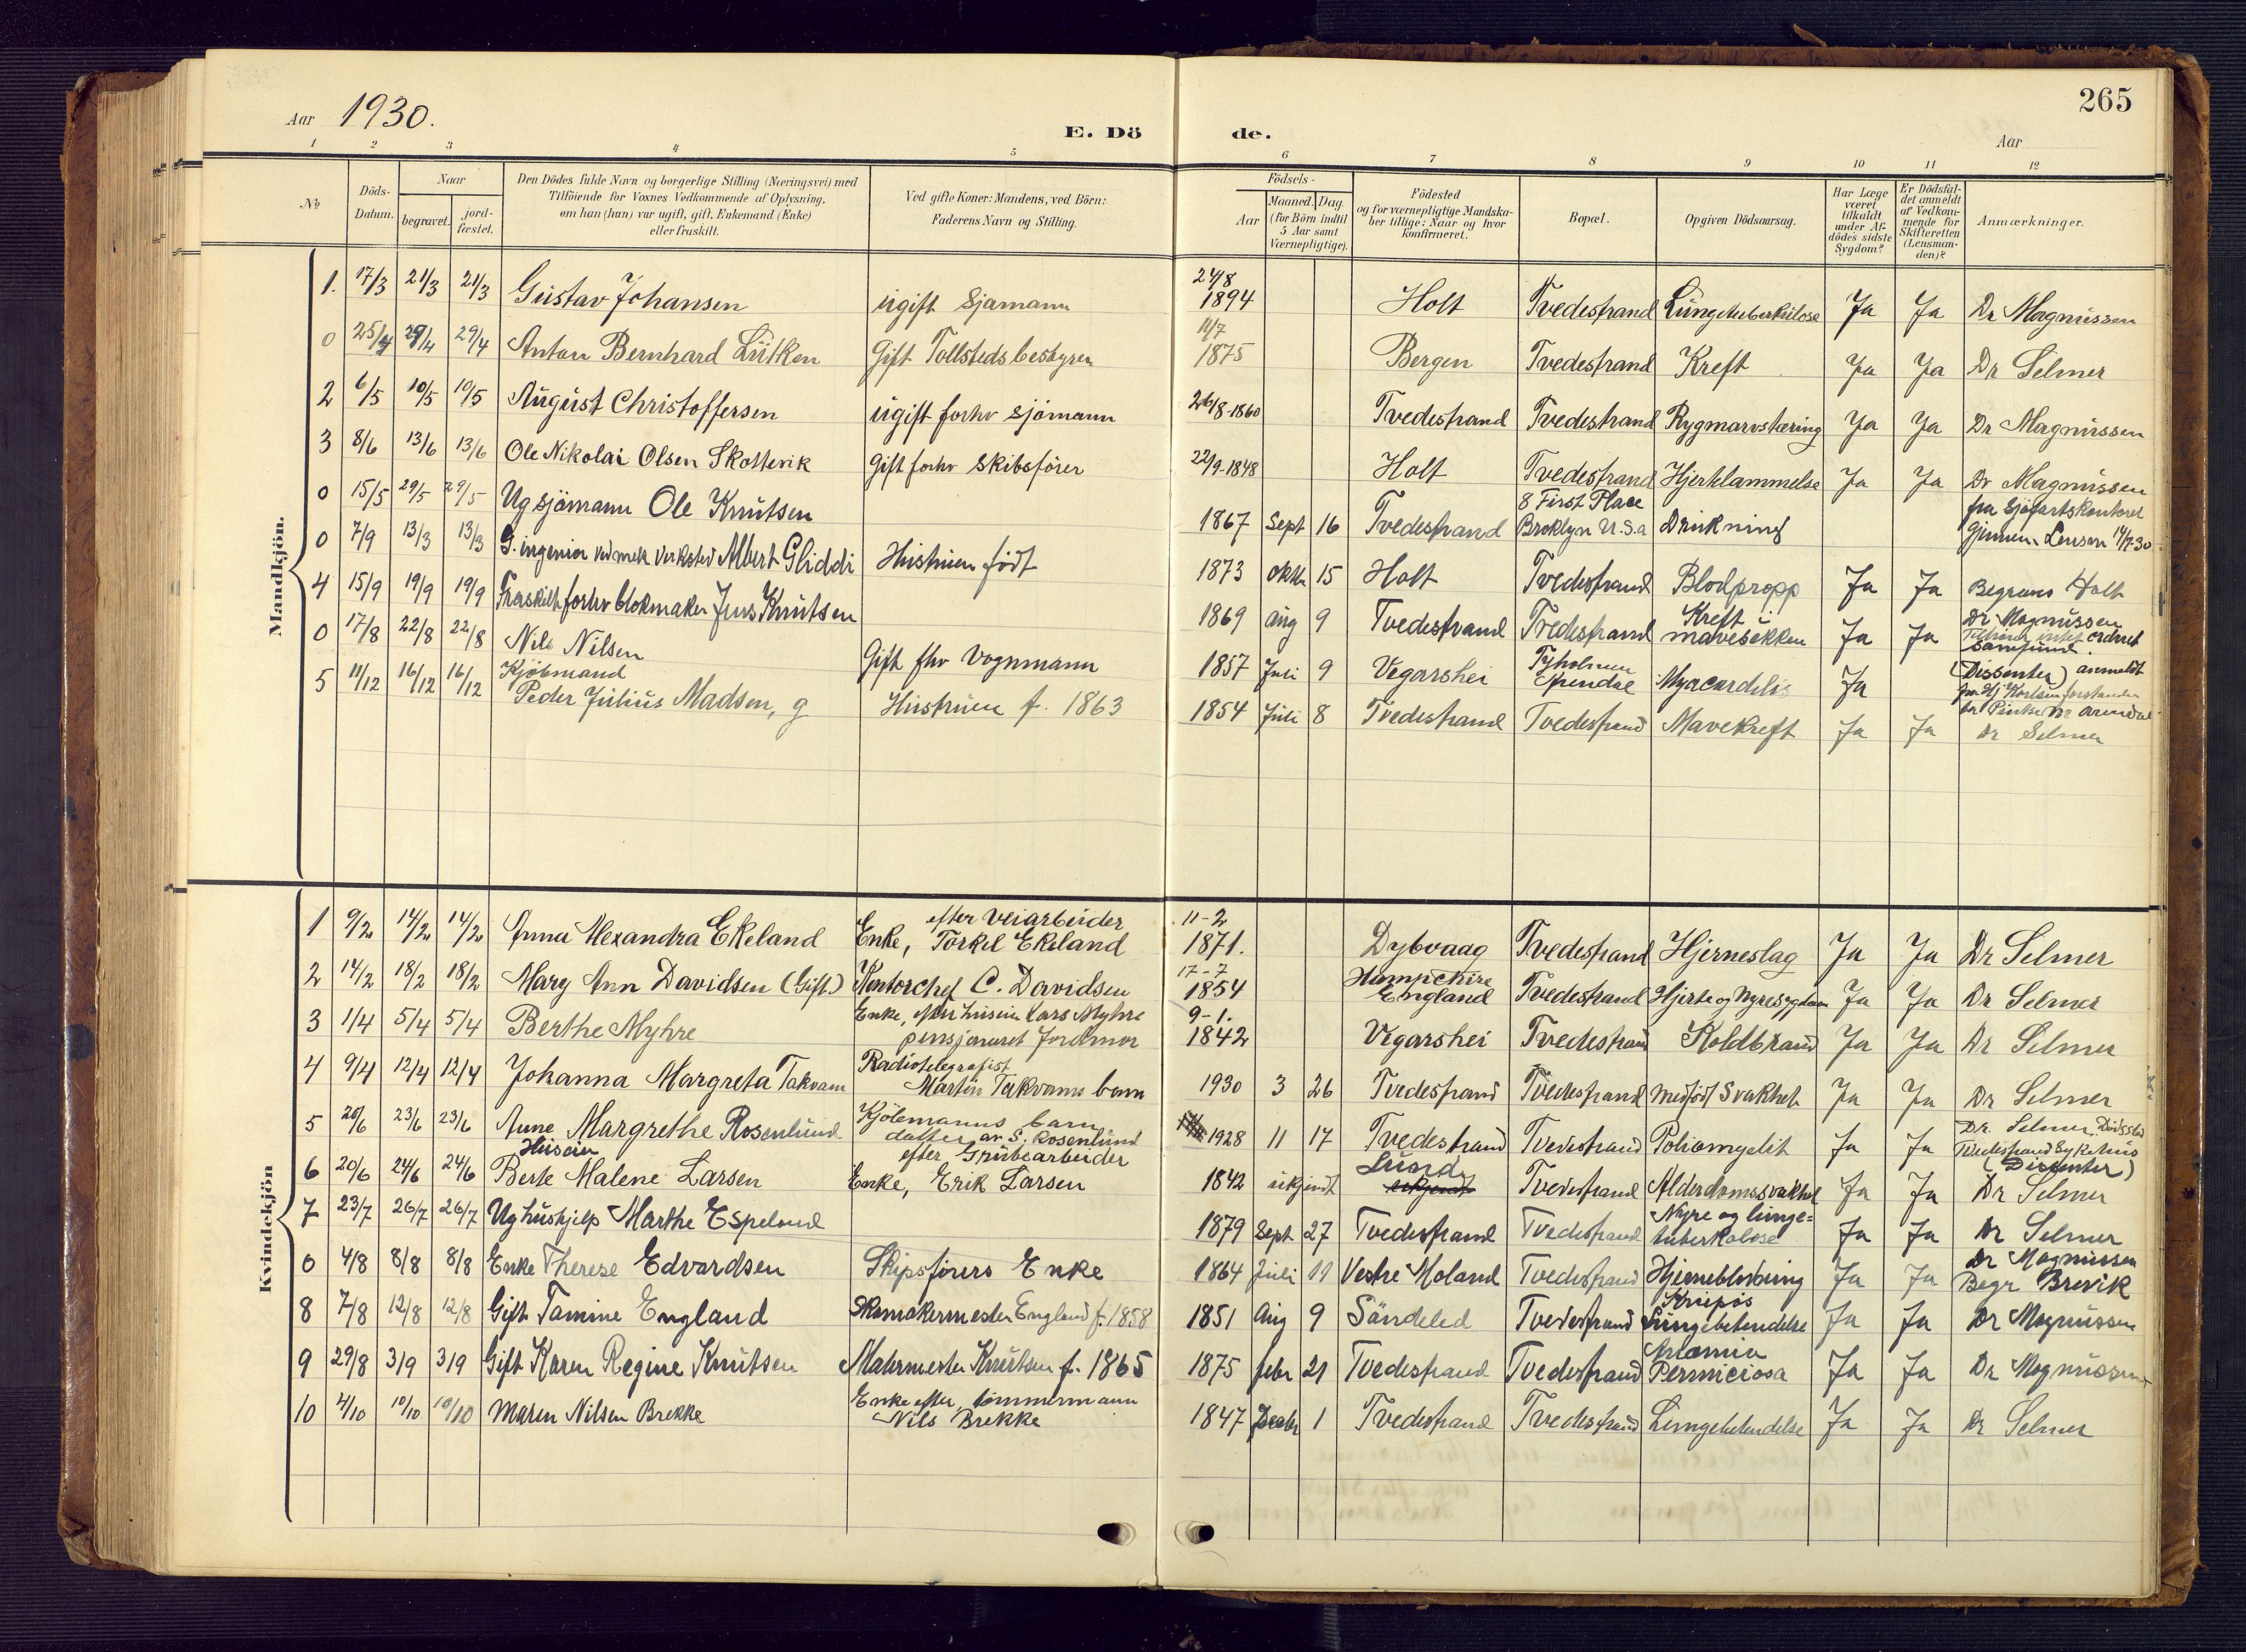 265
Aar 1930.
E. Dö de.
Aar
1 2 3 4 5 6 7 8 9 10 11 12
No
Döds-Datum.
Naar
begravet. jord-fæstet.
Den Dödes fulde Navn og borgerlige Stilling (Næringsvei) med
Tilföiende for Voxnes Vedkommende af Oplysning,
om han (hun) var ugift, gift, Enkemand (Enke)
eller fraskilt.
Ved gifte Koner: Mandens, ved Börn:
Faderens Navn og Stilling.
Födsels-
Aar Maaned. Dag.
(for Börn indtil
5 Aar samt
Værnepligtige).
Födested
og for værnepligtige Mandska-
ber tillige: Naar og hvor
konfirmeret.
Bopæl.
Opgiven Dödsaarsag.
Har Læge
været
tilkaldt
under Af-
dödes sidste
Sygdom?
Er Dödsfal-
det anmeldt
af Vedkom-
mende for
Skifteretten
(Lensman-
den)?
Anmærkninger.
Mandkjön.
1. 17/3 21/3 21/3 Gustav Johansen ugift Sjømann 24/8 1894 Holt Tvedestrand Lungetuberkulose Ja Ja Dr Magnussen
0 25/4 29/4 29/4 Anton Bernhard Lütken Gift Tollstedsbestyrer 11/7 1875 Bergen Tvedestrand Kreft Ja Ja Dr Selmer
2 6/5 10/5 10/5 August Christoffersen ugift forhv sjömann 26/8-1860 Tvedestrand Tvedestrand Rygmarvstæring Ja Ja Dr Magnussen
3 8/6 13/6 13/6 Ole Nikolai Olsen Skottevik Gift forhv Skibsförer 22/9-1848 Holt Tvedestrand Hjertelammelse Ja Ja Dr Magnussen
0 15/5 29/5 29/5 Ug sjömann Ole Knutsen 1867 Sept 16 Tvedestrand 8 First Place Broklyn U.S.a Drukning fra Sjøfartskontoret
0 7/9 13/3 13/3 G. ingeniør ved mek Verksted Albert Gliddi Hustruen født 1873 okt 15 Holt Tvedestrand Blodpropp Ja Ja Begraves Holt
4 15/9 19/9 19/9 Fraskilt forhv blokmaker Jens Knutsen 1869 aug 9 Tvedestrand Tvedestrand Kreft mavesekken Ja Ja Dr Magnussen
0 17/8 22/8 22/8 Nils Nilsen Gift fhv Vognmann 1857 Juli 9 Vegarshei Tyholmen Ja (Dissenter) anmeldt
5 11/12 16/12 16/12 Kjöbmand Peder Julius Madsen, g Hustruen f. 1863 1854 Juli 8 Tvedestrand Tvedestrand Mavekreft Ja Ja Dr Selmer
Kvindekjön
1 9/2 14/2 14/2 Anna Alexandra Ekeland Enke, efter veiarbeider Torkel Ekeland 11-2 1871. Dybvaag Tvedestrand Hjerneslag Ja Ja Dr Selmer
2 14/2 18/2 18/2 Mary Ann Davidsen (Gift) Kontorchef C. Davidsen 17-7 1854 Hampchire England Tvedestrand Hjerte og Nyresygdom Ja Ja Dr Selmer
3 1/4 5/4 5/4 Berthe Myhre Enke, efter huseier Lars Myhre pensjoneret Jordmor 9-1. 1842 Vegarshei Tvedestrand Koldbrand Ja Ja Dr Selmer
4 9/4 12/4 12/4 Johanna Margreta Takvam Radiotelegrafist Martin Takvams barn 1930 3 26 Tvedestrand Tvedestrand Medfødt Svakhet Ja Ja Dr Selmer
5 20/6 23/6 23/6 Anne Margrethe Rosenlund Kjöbmanns barn datter av S. Rosenlund 1928 11 17 Tvedestrand Tvedestrand Poliomyelit Ja Ja Dr. Selmer. Dödssted Tvedestrand Sykehus
6 20/6 24/6 24/6 Huseier Berte Malene Larsen Enke, efter Grubearbeider Erik Larsen 1842 ukjendt Lunde ukjendt Tvedestrand Alderdomssvakhet Ja Ja (Dissenter) Dr Selmer
7 23/7 26/7 26/7 Ug hushjelp Marthe Espeland 1879 Sept 27 Tvedestrand Tvedestrand Nyre og lunge= tuberkolose Ja Ja Dr Selmer
0 4/8 8/8 8/8 Enke Therese Edvardsen Skipsförers Enke 1864 Juli 11 Vestre Moland Tvedestrand Hjerneblødning Ja Ja Dr Magnussen Begr Brevik
8 7/8 12/8 12/8 Gift Tamine England Skomakermester England f. 1858 1851 Aug 9 Söndeled Tvedestrand Krupøs Lungebetendelse Ja Ja Dr Magnussen
9 29/8 3/9 3/9 Gift Karen Regine Knutsen Malermester Knutsen f. 1865 1875 febr 21 Tvedestrand Tvedestrand Anæmia Perniciosa Ja Ja Dr Magnussen
10 4/10 10/10 10/10 Maren Nilsen Brekke Enke efter tömmermann Nils Brekke 1847 Decbr 1 Tvedestrand Tvedestrand Lungebetendelse Ja Ja Dr Selmer